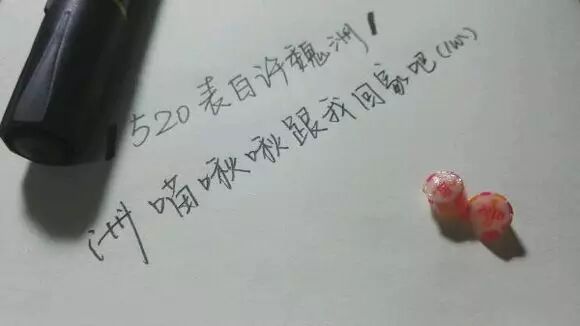 520表白许魏洲
洲喵啾啾跟我回家吧